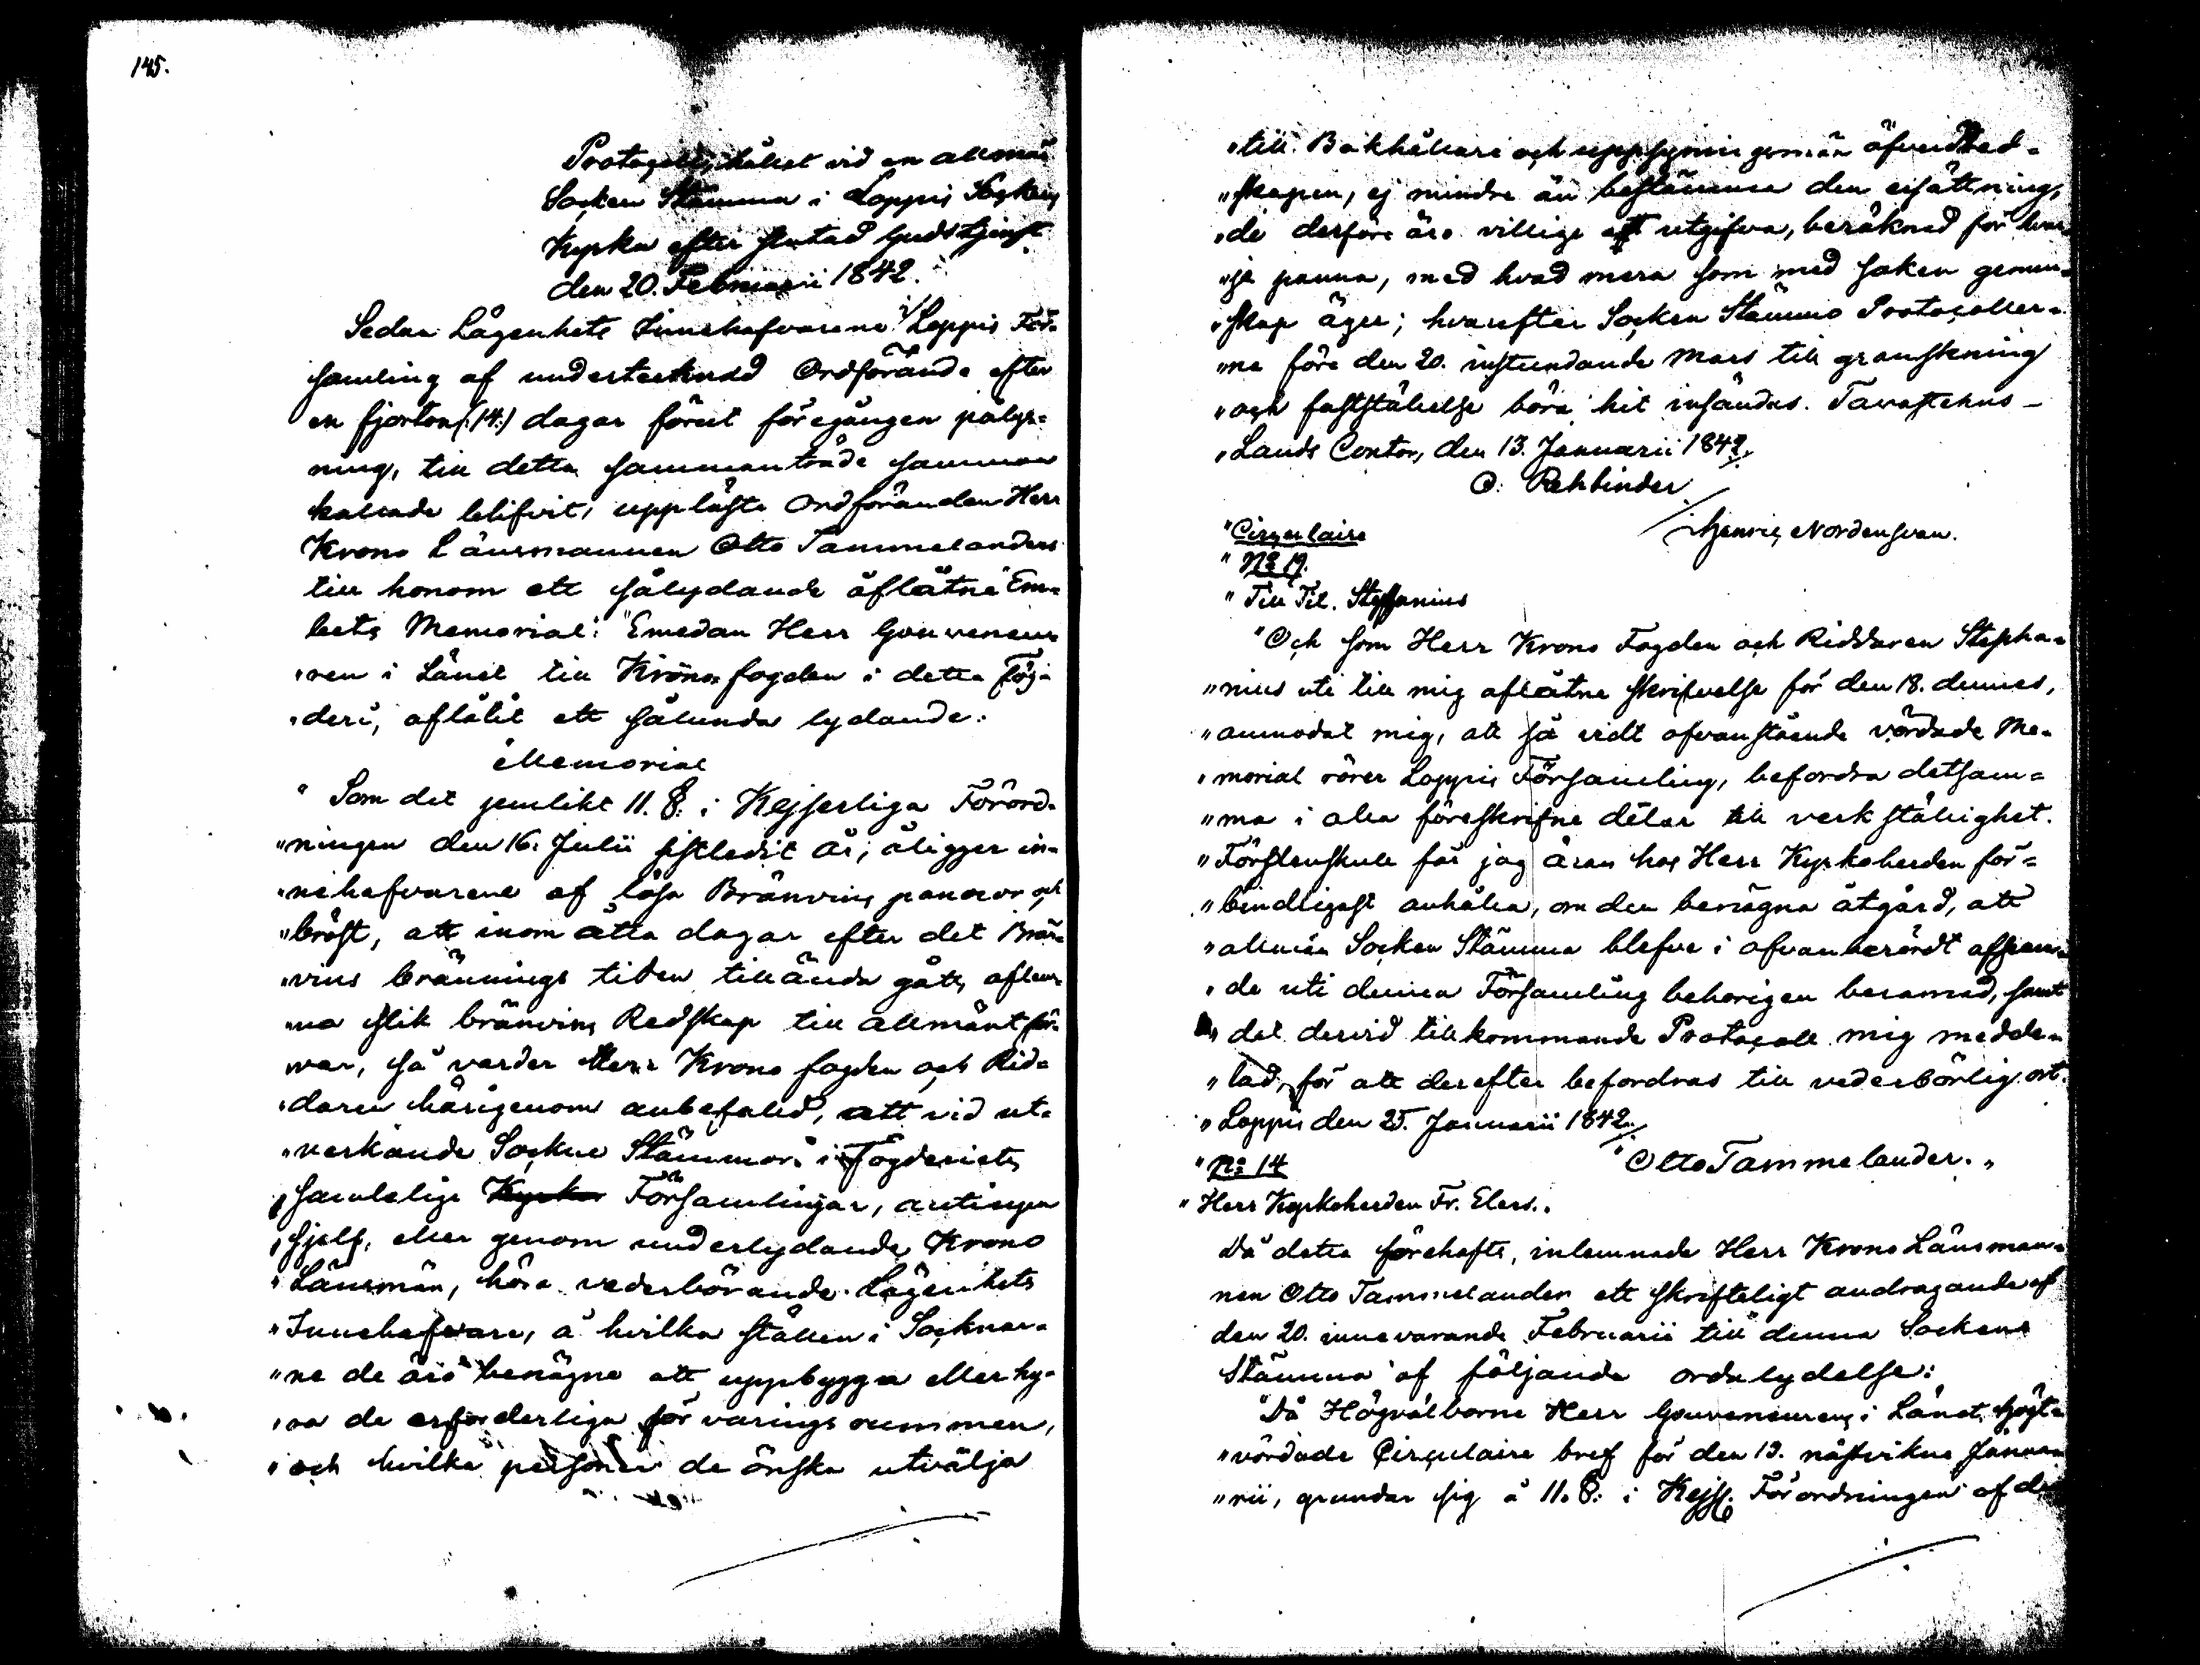 145.
Protocoll, hållet vid en allmän
Socken Stämma i Loppis Sockens
Kyrka efter slutad Gudstjenst
den 20. Februarii 1842.
Sedan Lägenhets Innehafvarene i Loppis För-
samling af undertecknad Ordförande efter
en fjorton (:14:) dagar förut föregången pålys-
ning, till detta sammanträde samman
kallade blifvit, uppläste Ordföranden Herr
Krono Länsmannen Otto Tammelanders
till honom ett sålydande aflåtne Em-
bets Memorial: "Emedan Herr Gouverneu-
"ren i Länet till Kronofogden i detta Fög-
"deri, aflåtit ett sålunda lydande:
Memorial
" Som det jemlikt 11. §: i Kejserliga Förord-
"ningen den 16. Julii sistledit år, åligger in-
"nehafvarene af lösa Bränvins pannor och
"bröst, att inom åtta dagar efter det Brän-
"vins brännings tiden tilländа gått, aflem-
"na slik bränvins Redskap till allmänt för-
"var, så varder Herr Krono fogden och Rid-
"daren härigenom anbefald, att vid ut-
"verkande Sockne Stämmor i Fögderiets
"samtelige Kyrko Församlingar, antingen
"sjelf, eller genom underlydande Krono
"Länsmän, höra vederbörande Lägenhets
"Innehafvare, å hvilka ställen i Socknar-
"ne de äro benägne att uppbygga eller hy-
"ra de erforderliga förvarings rummen,
"och hvilka personer de önska utvälja
"till Bokhållare och uppsyningsmän öfver Red-
"skapen, ej mindre än bestämma den ersättning,
"de derföre äro villige att utgifva, beräknad för hvar-
"je panna, med hvad mera som med saken gemen-
"skap äger; hvarefter Socken Stämmo Protocoller-
"ne före den 20. instundande Mars till granskning
"och fastställelse böra hit insändas. Tavastehus
"Lands Contor, den 13. Januarii 1842.
O: Rehbinder
Henric Nordensvan.
"Circulaire
" No 19.
" Till Tit. Steffanius
"Och som Herr Krono Fogden och Riddaren Stepha-
"nius uti till mig aflåtne skrifvelse för den 18. dennes,
"anmodat mig, att så vidt ofvanstående vördade Me-
"morial rörer Loppis Församling, befordra detsam-
"ma i alla föreskrifne delar till verkställighet.
"Förstenskull får jag äran hos Herr Kyrkoherden för-
"bindligast anhålla, om den benägna åtgärd, att
"allmän Socken Stämma blefve i ofvanberördt afseen-
"de uti denna Församling behörigen beramad, samt
"det dervid tillkommande Protocoll mig medde-
"lad, för att derefter befordras till vederbörlig ort.
"Loppis den 25. Januarii 1842.
"Otto Tammelander."
"No 14
"Herr Kyrkoherden Fr. Elers.
Då detta förehafts, inlemnade Herr Krono Länsman-
nen Otto Tammelander ett skrifteligt andragande af
den 20. innevarande Februarii till denna Sockens
Stämma af följande ordalydelse:
"Då Högvälborne Herr Gouverneurens i Länet Högt-
"vördade Circulaire bref för den 13. nästvikne Janua-
"rii, grundar sig å 11. §: i Kejs. Förordningen af den